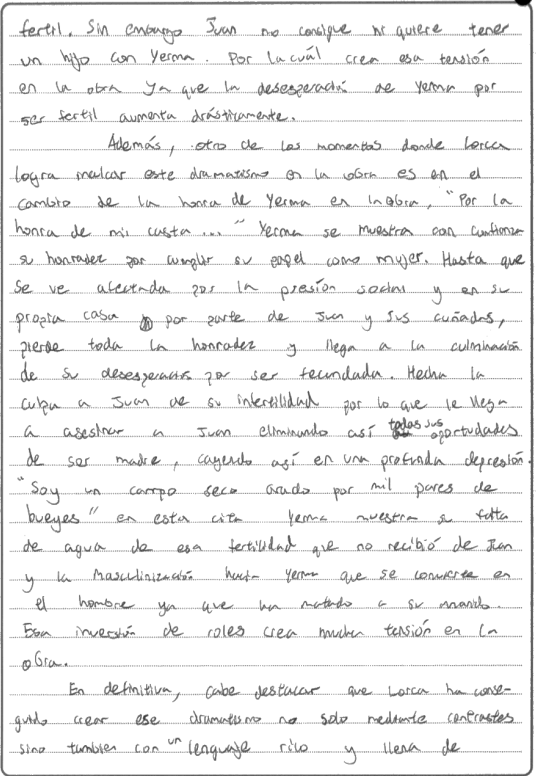 fertil. Sin embargo Juan no consigue ni quiere tener
un hijo con Yerma. Por la cuál crea esa tensión
en la obra ya que la desesperación de Yerma por
ser fertil aumenta drásticamente.
Además, otro de los momentos donde Lorca
logra inculcar este dramatismo en la obra es en el
cambio de la honra de Yerma en la obra, "Por la
honra de mi casta..." Yerma se muestra con confianza
su honradez por cumplir su papel como mujer. Hasta que
se ve afectada por la presión social y en su
propia casa por parte de Juan y sus cuñadas,
pierde toda la honradez y llega a la culminación
de su desesperación por ser fecundada. Hecha la
culpa a Juan de su infertilidad por lo que le llega
a asesinar a Juan eliminando así todas sus oportudades
de ser madre, cayendo así en una profunda depresión.
"Soy un campo seco arado por mil pares de
bueyes" en esta cita Yerma muestra su falta
de agua de esa fertilidad que no recibió de Juan
y la masculinización hacia Yerma que se convierte en
el hombre ya que ha matado a su marido.
Esa inversión de roles crea mucha tensión en la
obra.
En definitiva, cabe destacar que Lorca ha conse-
guido crear ese dramatismo no solo mediante contrastes
sino tambien con un lenguaje rico y llena de